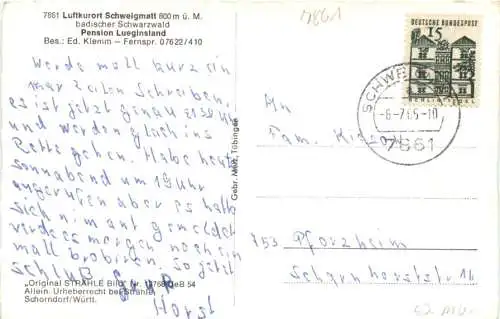 7861 Luftkurort Schweigmatt 800 m ü. M.
badischer Schwarzwald
Pension Lueginsland
Bes.: Ed. Klemm - Fernspr. 07622/410
7861
Werde mall kurz ein
par Zeilen Schreiben.
es ist jetzt genau
und werden gleich ins
Bette gehen. Habe heute
sonnabend um 19 Uhr
angerufen aber es hatte
sich nimant gemeldet
werde es morgen noch ein
mall brobiren. So jetzt
schluß
Horst
"Original STRÄHLE Bild" Nr.
Allein. Urheberrecht bei Strähle,
Schorndorf/Württ.
Gebr. Metz, Tübingen
DEUTSCHE BUNDESPOST
15
SCHWE
-6-7.65-10
7861
An
Fam.
753 Pforzheim
Scharnhorststr. 16